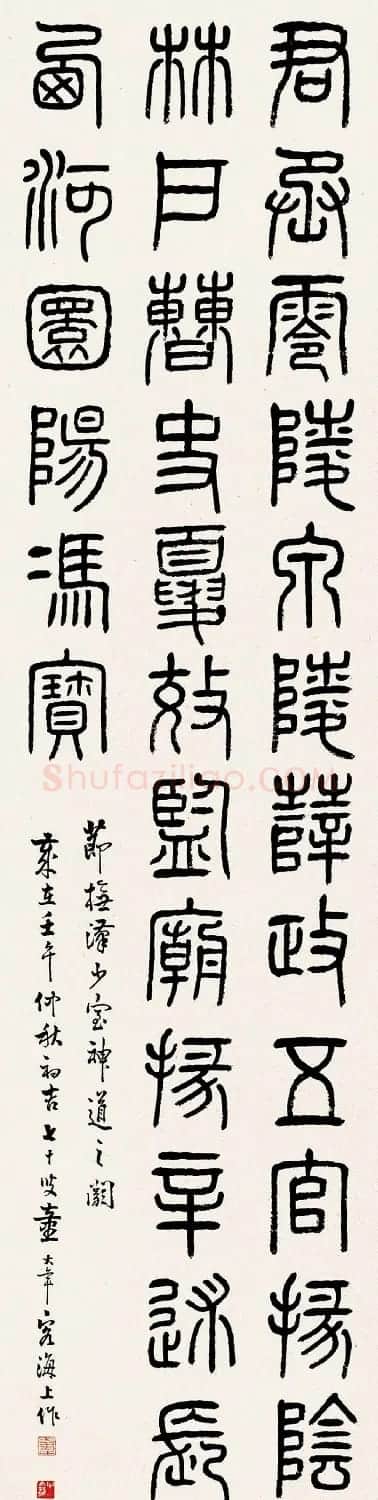 君丞零陵泉陵薛政五官掾陰
林戶曹史夏效監廟掾辛述長
西河圜陽馮寶
節橅漢少室神道之闕
歲在壬午仲秋初吉七十叟童大年客海上作
Shufaziliao.COM